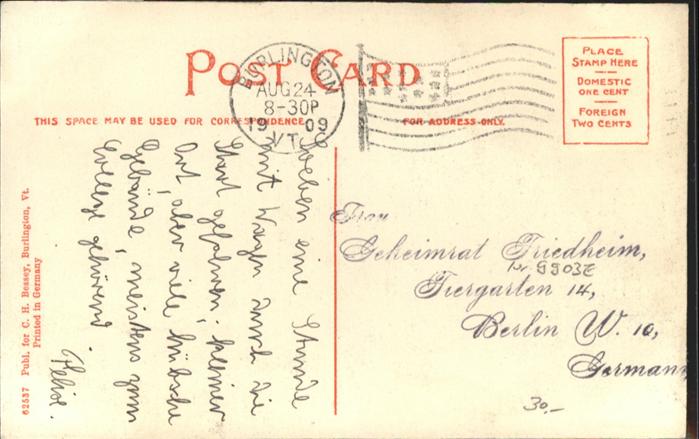 POST CARD
THIS SPACE MAY BE USED FOR CORRESPONDENCE
FOR ADDRESS ONLY.
BURLINGTON
AUG 24
8-30P
19 09
VT.
PLACE
STAMP HERE
DOMESTIC
ONE CENT
FOREIGN
TWO CENTS
Soeben eine Stunde
mit Wagen durch die
Stadt gefahren; kleiner
Ort, aber viele hübsche
Gebäude, meistens zum
College gehörend.
Felix.
Frau
Geheimrat Friedheim,
Tiergarten 14,
Berlin W. 10,
Germany
30.-
62537 Publ. for C. H. Bessey, Burlington, Vt.
Printed in Germany